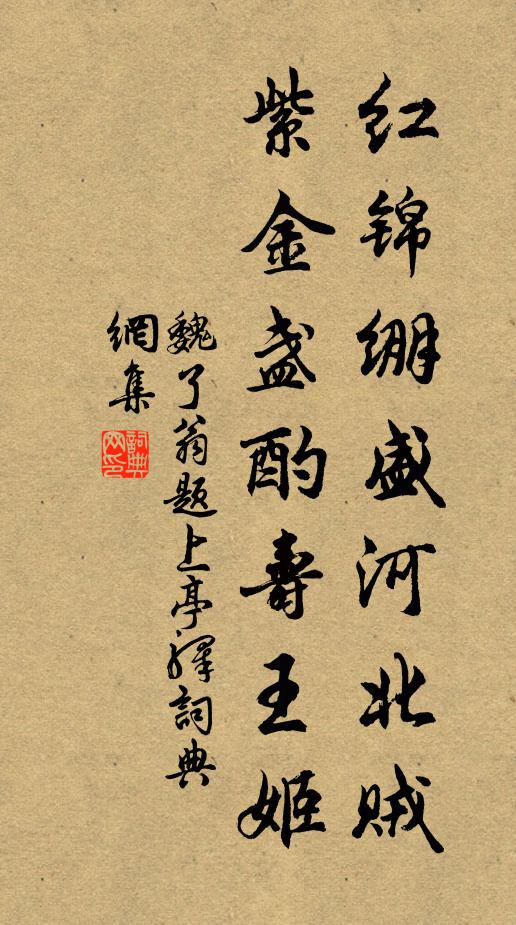 红锦绷盛河北贼
紫金盏酌寿王姬
魏了翁题上亭驿词典
網集
詞典
网印